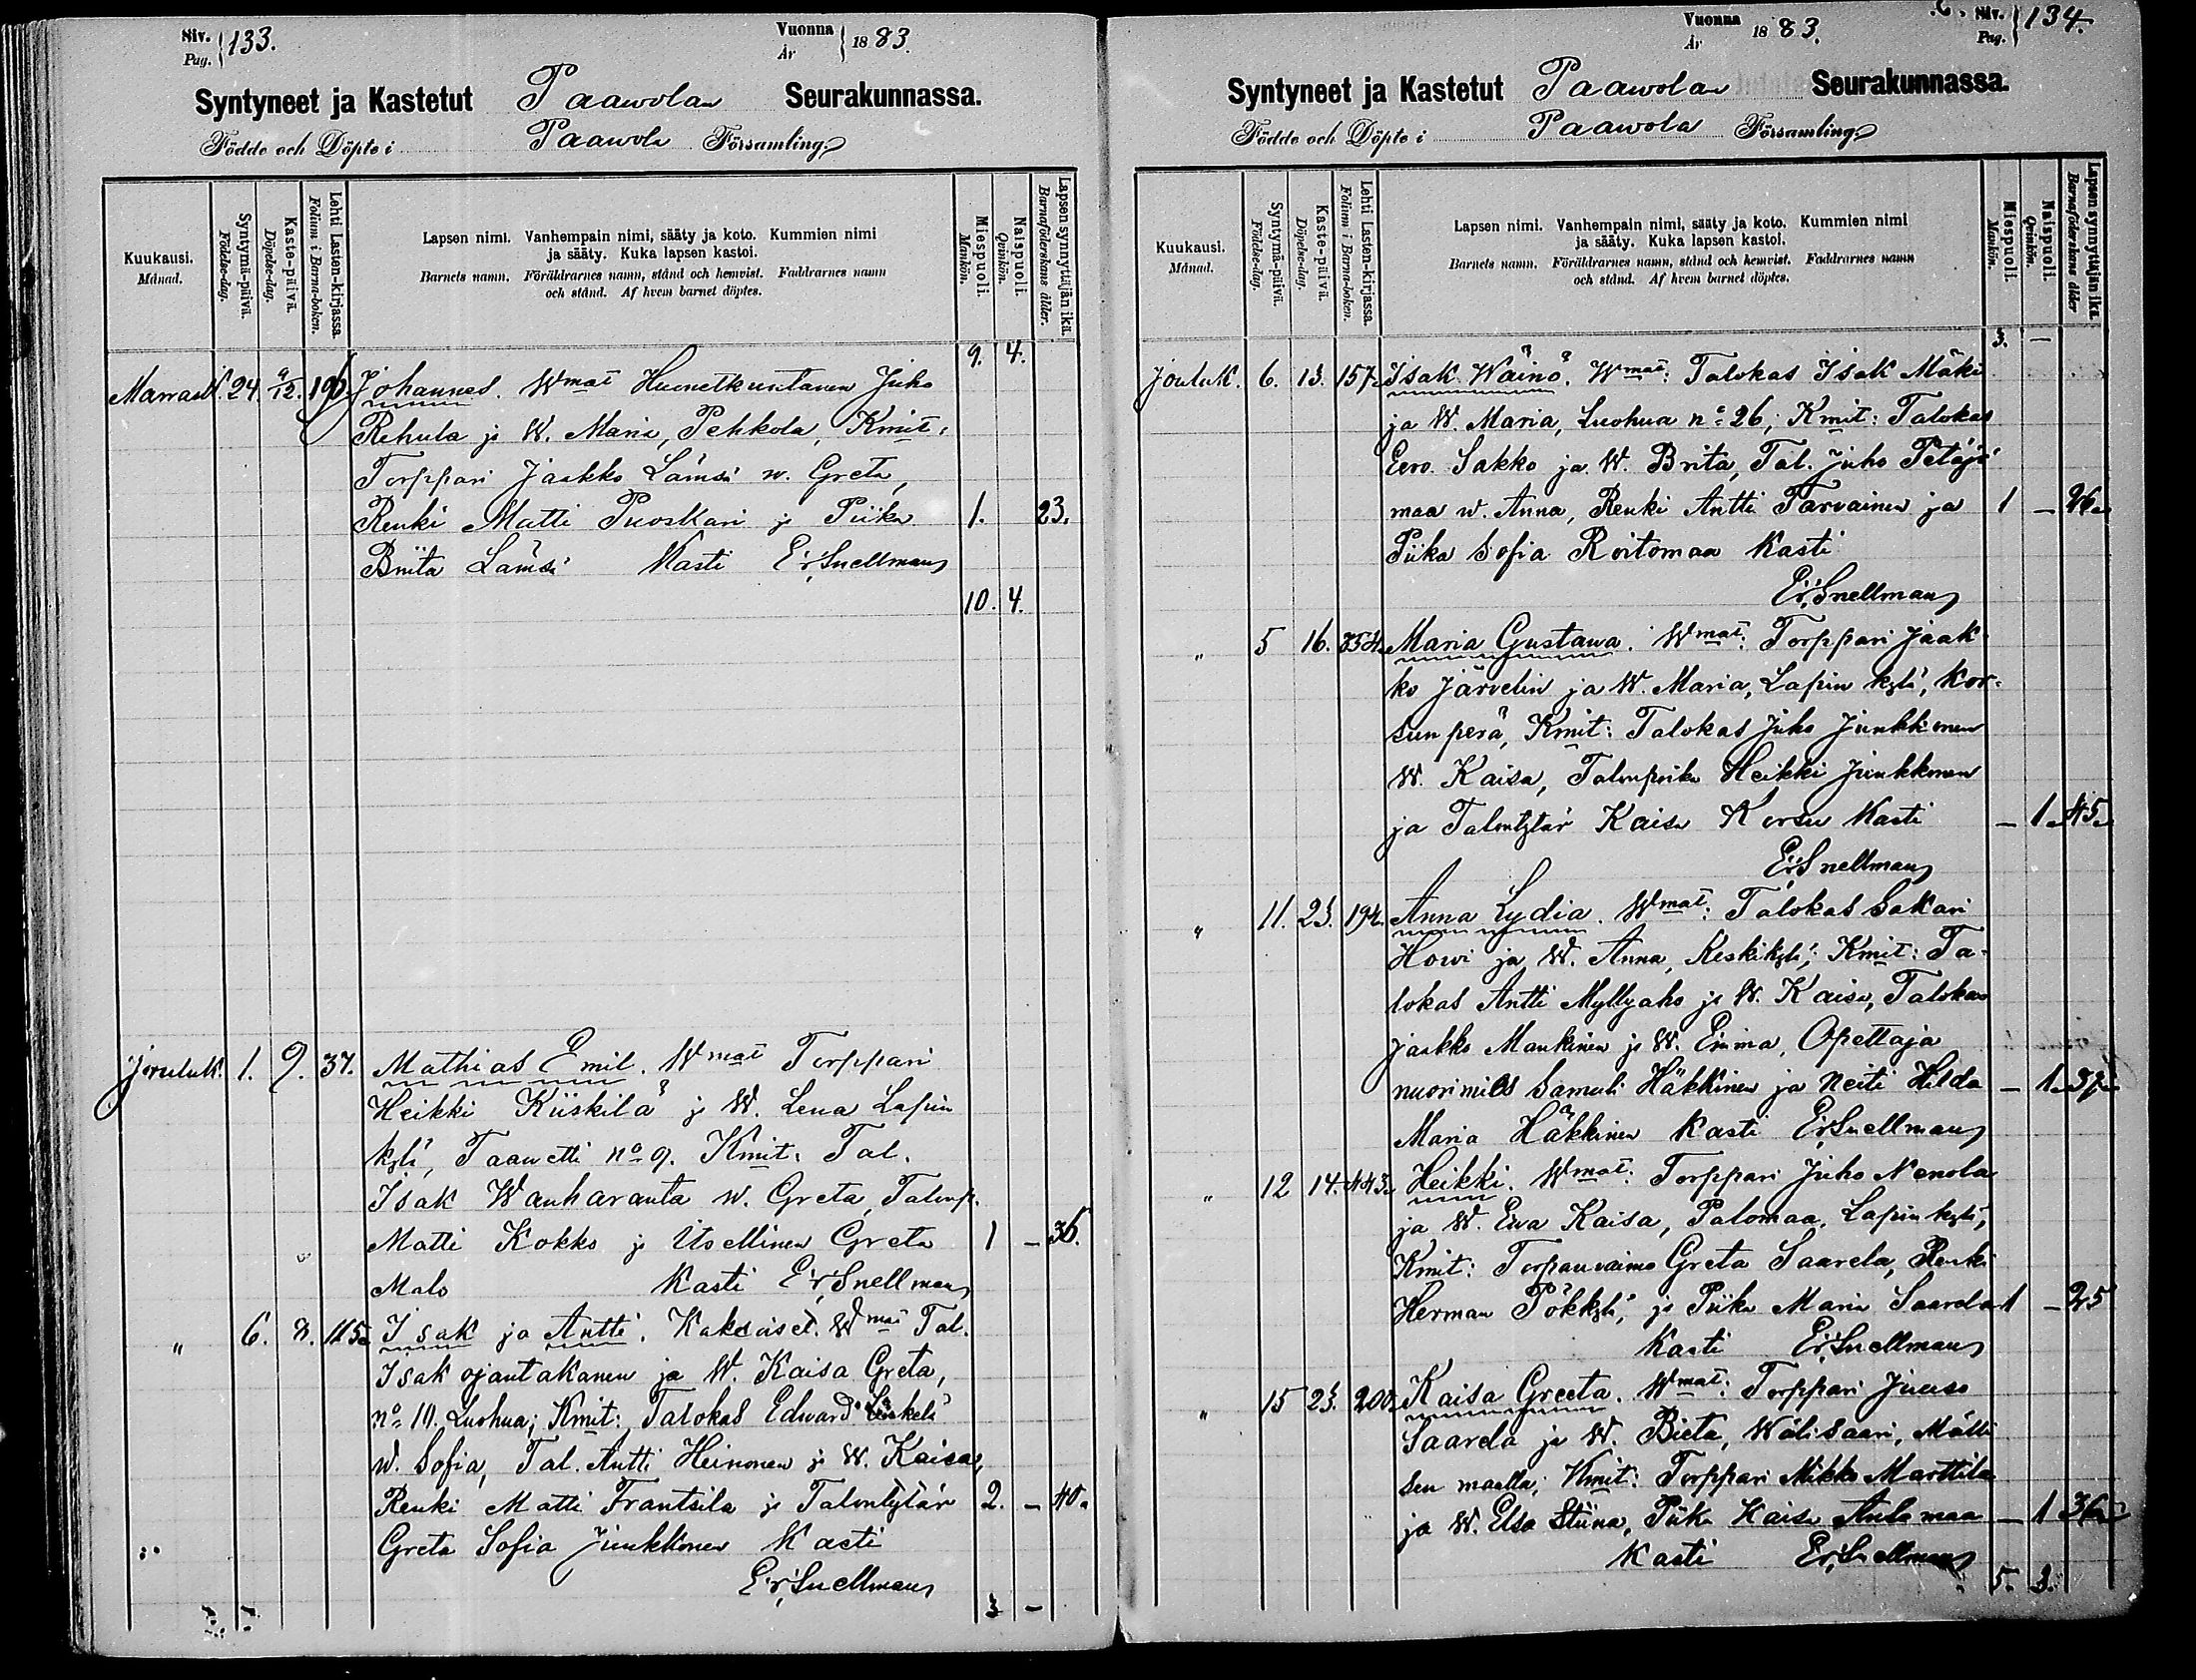 Siv. Pag. 133.
Vuonna År 1883.
Syntyneet ja Kastetut Paawolan Seurakunnassa.
Födde och Döpte i Paawola Församling
Kuukausi. Månad.
Syntymä-päivä. Födelse-dag.
Kaste-päivä. Döpelse-dag.
Lehti Lasten-kirjassa. Folium i Barna-boken.
Lapsen nimi. Vanhempain nimi, sääty ja koto. Kummien nimi
ja sääty. Kuka lapsen kastoi.
Barnets namn. Föräldrarnes namn, stånd och hemvist. Faddrarnes namn
och stånd. Af hvem barnet döptes.
Miespuoli. Mankön.
Naispuoli. Qvinkön.
Lapsen synnyttäjän ikä. Barnaföderskans ålder.
9. 4.
Marrask. 24. 9/12. Johannes. Wmat Huonetkuntanen Juho
Rehula ja W. Maria, Pehkola, Kmit:
Torppari Jaakko Lämsä w. Greta,
Renki Matti Puoskari ja Piika 1. 23.
Briita Lämsä Kasti Er. Snellman
10. 4.
Jouluk. 1. 9. 37. Mathias Emil. Wmat Torppari
Heikki Kiiskilä ja W. Lena Lapin
kylä, Taawetti no 9. Kmit: Tal.
Isak Wanharanta w. Greta, Talonp.
Matti Kokko ja Itsellinen Greta 1 – 36.
Malo Kasti Er. Snellman
" 6. 8. 115. Isak ja Antti. Kaksoiset. Wmat Tal.
Isak Ojantakanen ja W. Kaisa Greta,
no 10, Luohua; Kmit: Talokas Edward
w. Sofia, Tal. Antti Heinonen ja W. Kaisa,
Renki Matti Frantsila ja Talontytär 2. – 40.
Greta Sofia Junkkonen Kasti
Er. Snellman
3 –
Vuonna År 1883.
Siv. Pag. 134.
Syntyneet ja Kastetut Paawolan Seurakunnassa.
Födde och Döpte i Paawola Församling
Kuukausi. Månad.
Syntymä-päivä. Födelse-dag.
Kaste-päivä. Döpelse-dag.
Lehti Lasten-kirjassa. Folium i Barna-boken.
Lapsen nimi. Vanhempain nimi, sääty ja koto. Kummien nimi
ja sääty. Kuka lapsen kastoi.
Barnets namn. Föräldrarnes namn, stånd och hemvist. Faddrarnes namn
och stånd. Af hvem barnet döptes.
Miespuoli. Mankön.
Naispuoli. Qvinkön.
Lapsen synnyttäjän ikä. Barnaföderskans ålder
3. –
Jouluk. 6. 13. 157. Isak Wäinö. Wmat: Talokas Isak Mäki
ja W. Maria, Luohua no 26; Kmit: Talokas
Eero Sakko ja W. Brita, Tal. Juho Petäjä
maa w. Anna, Renki Antti Tarvainen ja 1 – 26.
Piika Sofia Roitomaa Kasti
Er. Snellman
" 5 16. 354. Maria Gustawa. Wmat: Torppari Jaak
ko Järvelin ja W. Maria, Lapin kylä, Kor-
sunperä, Kmit: Talokas Juho Junkkonen
W. Kaisa, Talonpoika Heikki Junkkonen
ja Talontytär Kaisa Korsu Kasti – 1. 45.
Er. Snellman
" 11. 23. 194. Anna Lydia. Wmat: Talokas Sakari
Howi ja W. Anna, Keskikylä; Kmit: Ta-
lokas Antti Myllyaho ja W. Kaisa, Talokas
Jaakko Mankinen ja W. Emma, Opettaja
nuorimies Samuli Häkkinen ja Neiti Hilda – 1. 37.
Maria Häkkinen Kasti Er. Snellman
" 12 14. 443. Heikki. Wmat: Torppari Juho Nenola
ja W. Ewa Kaisa, Palomaa, Lapin kylä,
Kmit: Torpanvaimo Greta Saarela, Renki
Herman Pökkylä, ja Piika Maria Saarela 1 – 25
Kasti Er. Snellman
" 15 23. 200. Kaisa Greeta. Wmat: Torppari Juuso
Saarela ja W. Brita, Wälisaari, Mätti
sen maalla; Kmit: Torppari Mikko Marttila
ja W. Elsa Stiina, Piika Kaisa Anlamaa – 1 36.
Kasti Er. Snellman
5. 3.